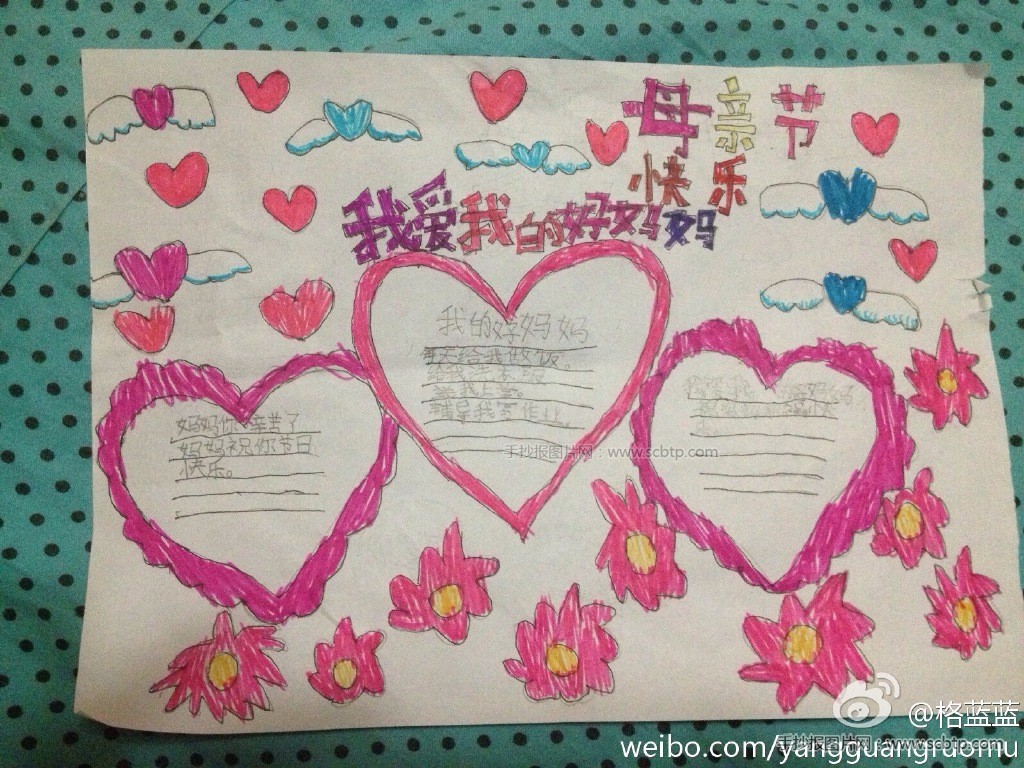 母亲节
快乐
我爱我的好妈妈
我的好妈妈
每天给我做饭。
给我洗衣服
辅导我写作业
妈妈你辛苦了
妈妈祝你节日
快乐。
手抄报图片网:www.scbtp.com
@格蓝蓝
weibo.com/yangguangruomu
手抄报图片网:www.scbtp.com